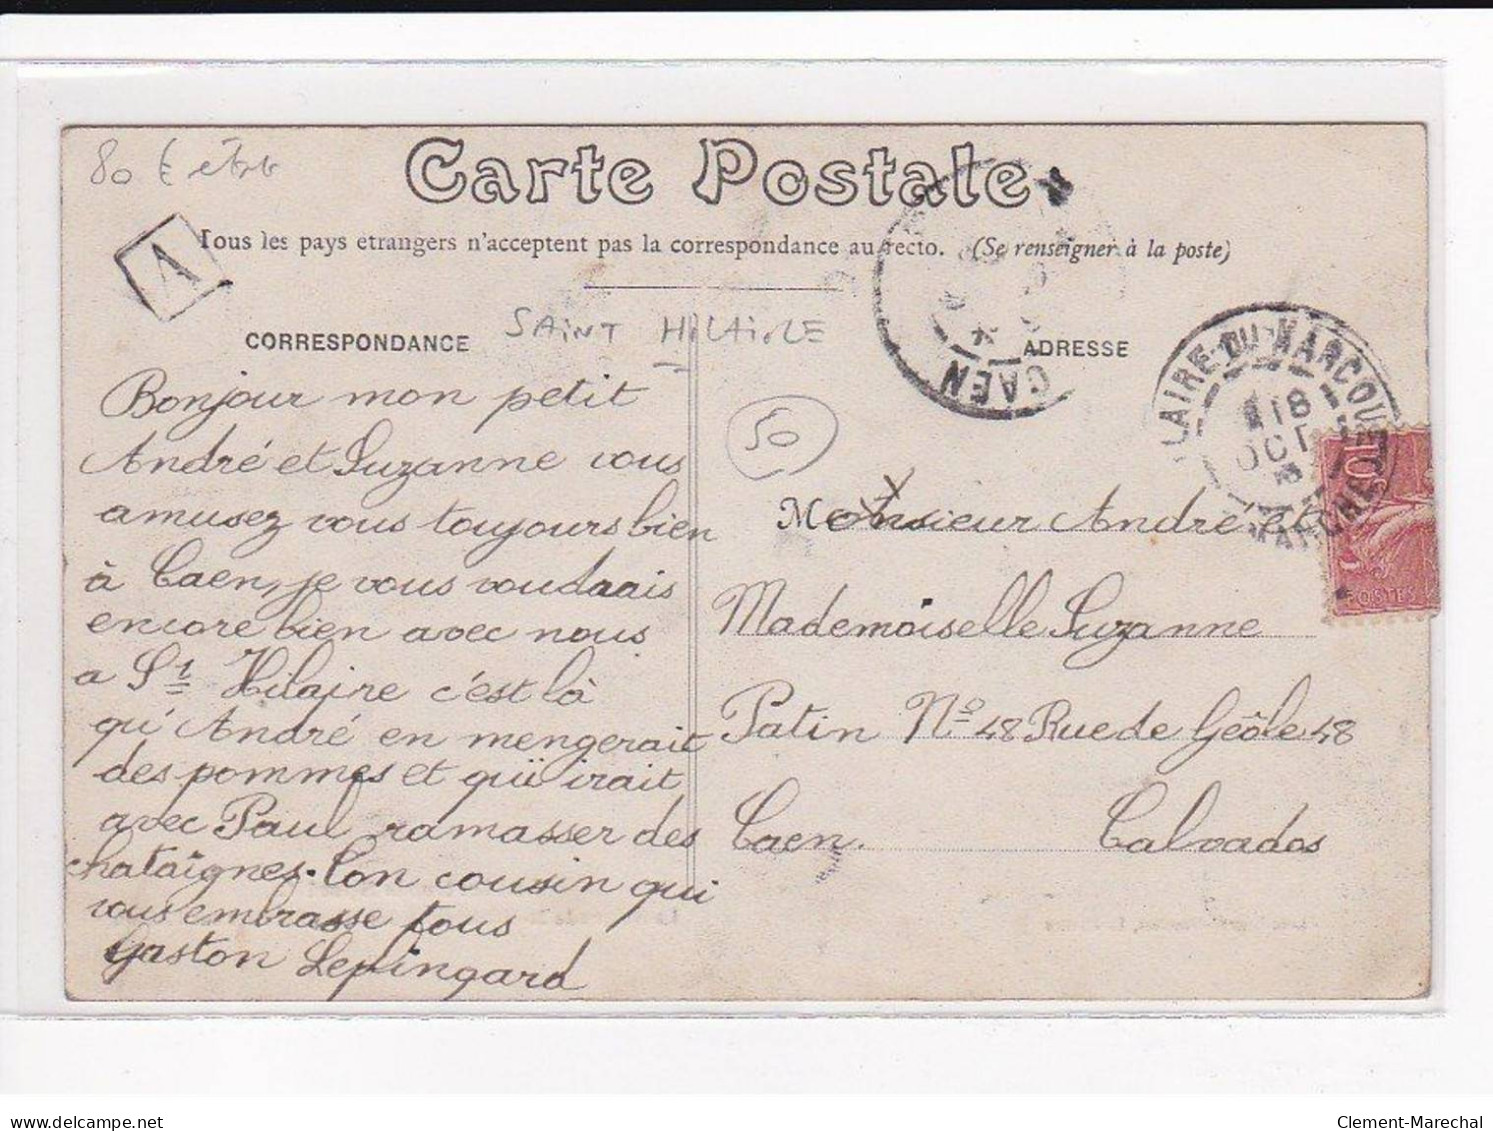 80 €
Carte Postale
Tous les pays etrangers n'acceptent pas la correspondance au recto. (Se renseigner à la poste)
A
SAINT HILAIRE
CORRESPONDANCE
Bonjour mon petit
André et Suzanne vous
amusez vous toujours bien
à Caen, je vous voudrais
encore bien avec nous
a St Hilaire c'est là
qu'André en mengerait
des pommes et qui irait
avec Paul ramasser des
chataîgnes. Ton cousin qui
vous embrasse tous
Gaston Lepingard
50
CAEN
ADRESSE
LAIRE-DU-HARCOU
18
OCT
MANCHE
10
POSTES
Monsieur André et
Mademoiselle Suzanne
Patin No 48 Rue de Geôle 48
Caen. Calvados
www.delcampe.net
Clement-Marechal